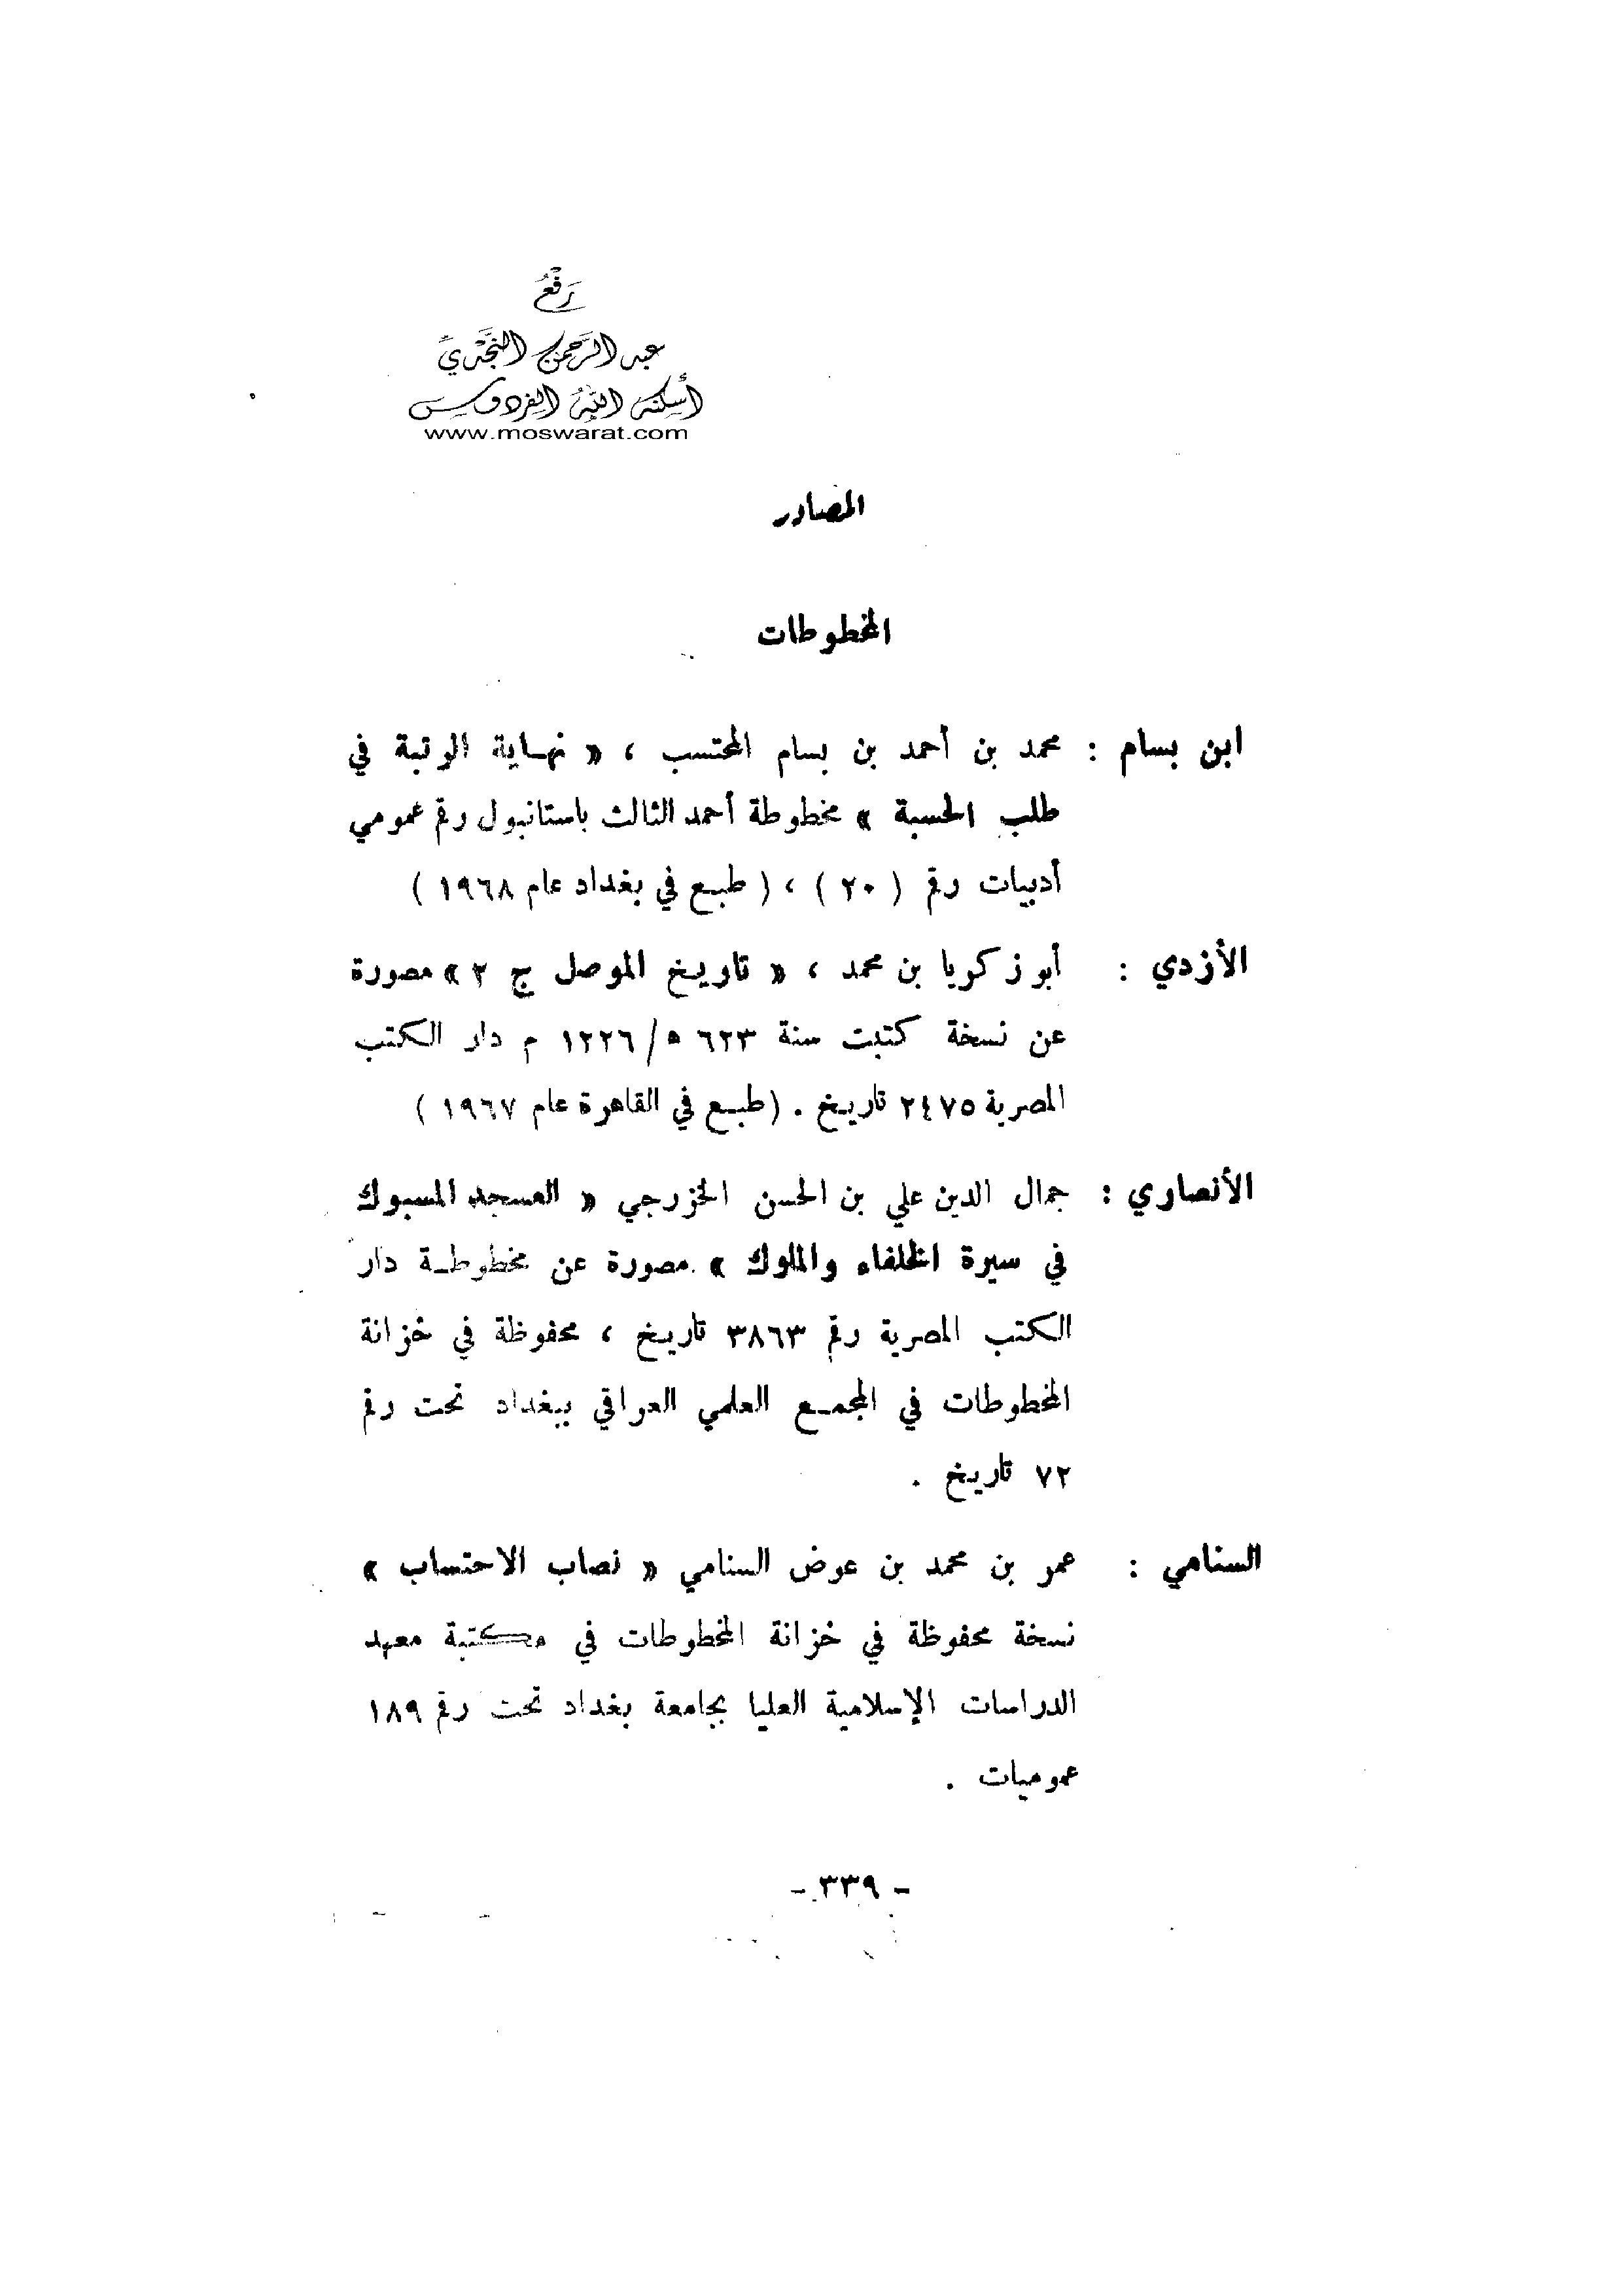 رَفْعُ
عبد الرَّحمن النَّجْدي
أسكنه الله الفردوس
www.moswarat.com
المصادر
المخطوطات
ابن بسام : محمد بن أحمد بن بسام المحتسب ، « نهاية الرتبة في
طلب الحسبة » مخطوطة أحمد الثالث باستانبول رقم عمومي
أدبيات رقم ( ٢٠ ) ، ( طبع في بغداد عام ١٩٦٨ )
الأزدي : أبو زكريا بن محمد ، « تاريخ الموصل ج ٢ » مصورة
عن نسخة كتبت سنة ٦٢٣ ه / ١٢٢٦ م دار الكتب
المصرية ٢٤٧٥ تاريخ . (طبع في القاهرة عام ١٩٦٧ )
الأنصاري : جمال الدين علي بن الحسن الخزرجي « العسجد المسبوك
في سيرة الخلفاء والملوك » مصورة عن مخطوطة دار
الكتب المصرية رقم ٣٨٦٣ تاريخ ، محفوظة في خزانة
المخطوطات في المجمع العلمي العراقي ببغداد تحت رقم
٧٢ تاريخ .
السنامي : عمر بن محمد بن عوض السنامي « نصاب الاحتساب »
نسخة محفوظة في خزانة المخطوطات في مكتبة معهد
الدراسات الإسلامية العليا بجامعة بغداد تحت رقم ١٨٩
عموميات .
- ٣٣٩ -